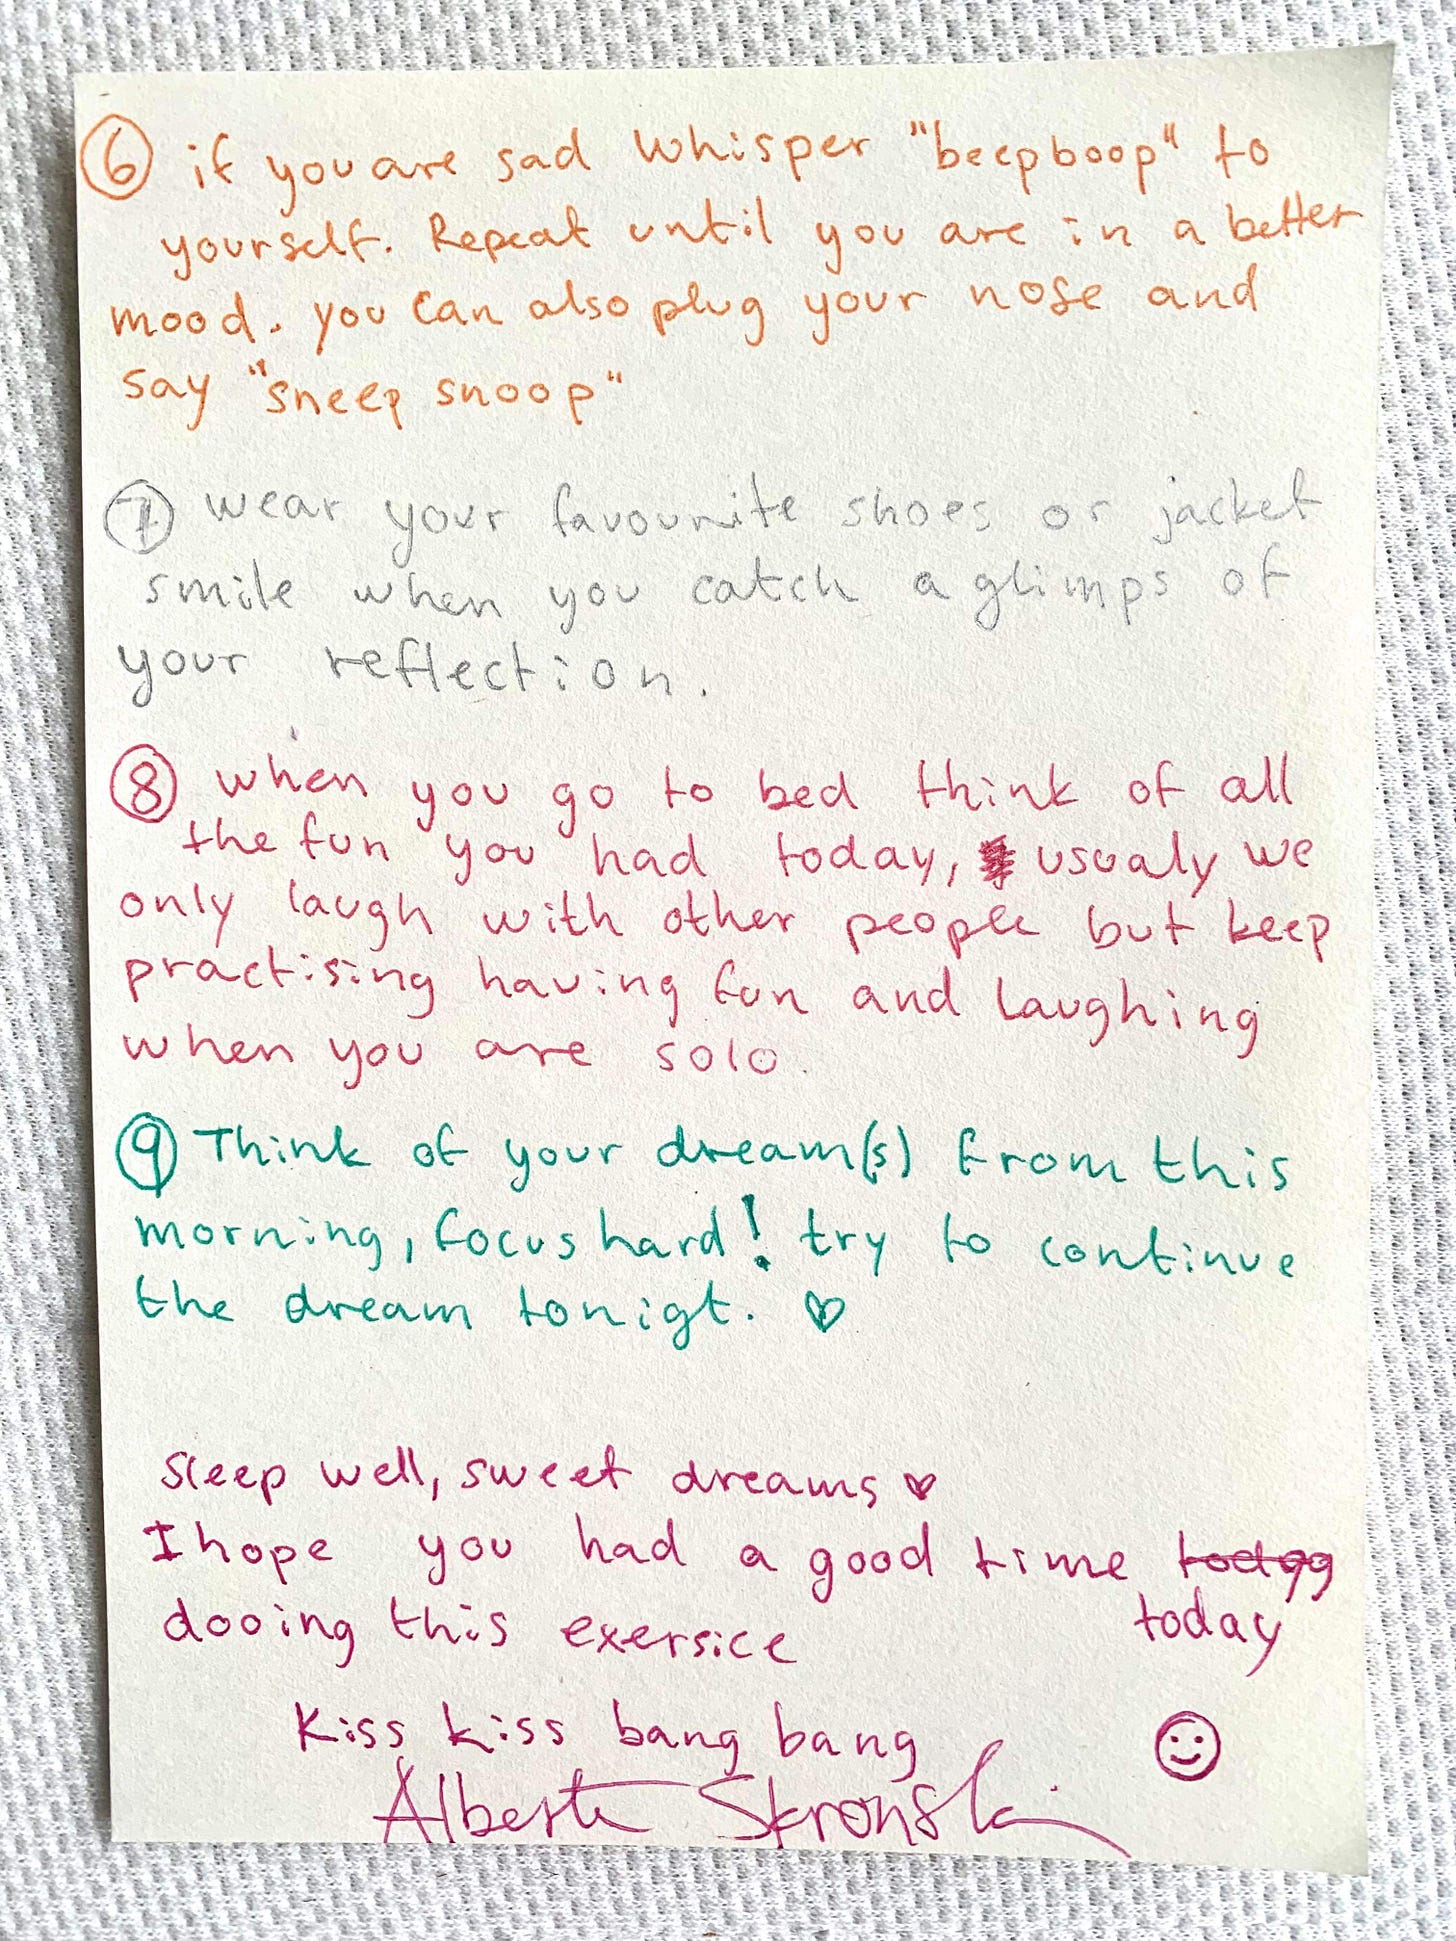 6 if you are sad whisper "beepboop" to
yourself. Repeat until you are in a better
mood. you can also plug your nose and
say "sneep snoop"
7 wear your favourite shoes or jacket
smile when you catch a glimps of
your reflection.
8 when you go to bed think of all
the fun you had today, usualy we
only laugh with other people but keep
practising having fun and laughing
when you are solo.
9 Think of your dream(s) from this
morning, focus hard! try to continue
the dream tonigt. ♡
sleep well, sweet dreams ♥
I hope you had a good time
today
dooing this exersice
Kiss kiss bang bang